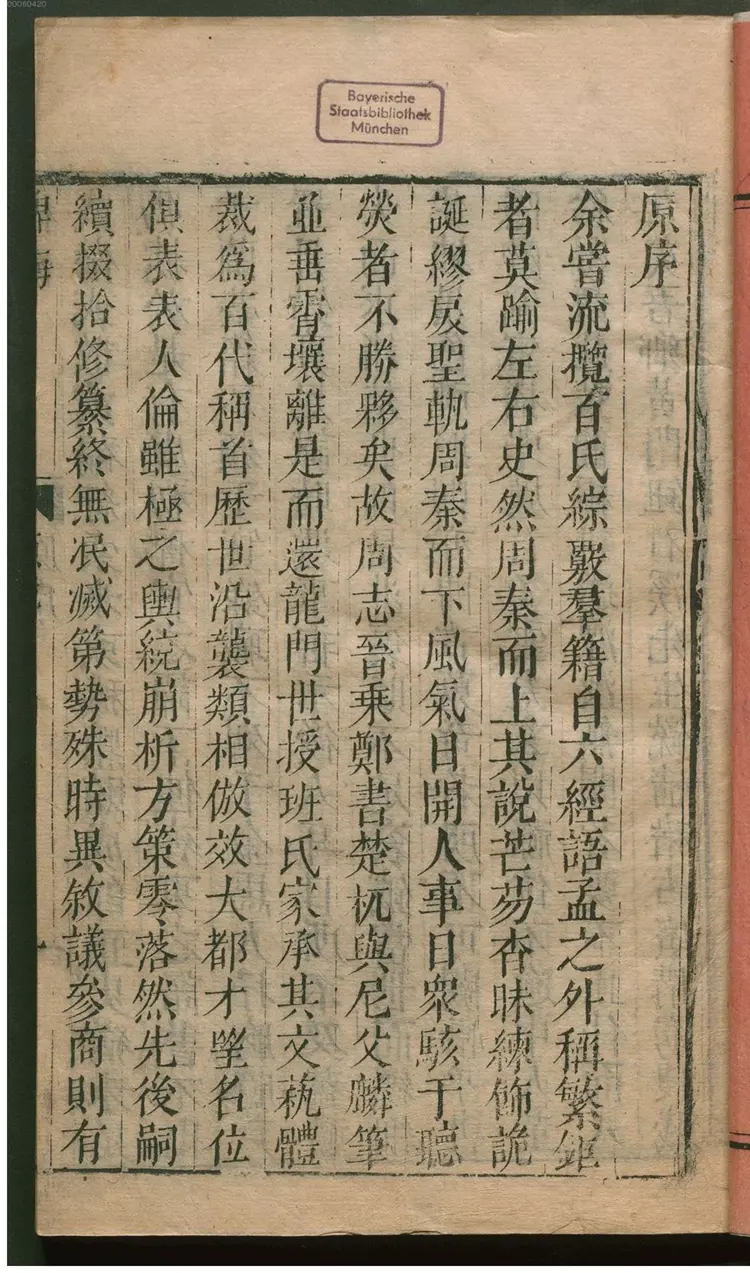 00060420
Bayerische
Staatsbibliothek
München
原序
余嘗流攬百氏綜覈羣籍自六經語孟之外稱繁鉅
者莫踰左右史然周秦而上其說芒芴杳昧練飾詭
誕繆戾聖軌周秦而下風氣日開人事日眾駭于聽
熒者不勝夥矣故周志晉乘鄭書楚杌與尼父麟筆
並垂霄壤離是而還龍門世授班氏家承其文蓺體
裁爲百代稱首歷世沿襲類相倣效大都才望名位
俱表表人倫雖極之輿統崩析方策零落然先後嗣
續掇拾修纂終無泯滅第勢殊時異敘議參商則有